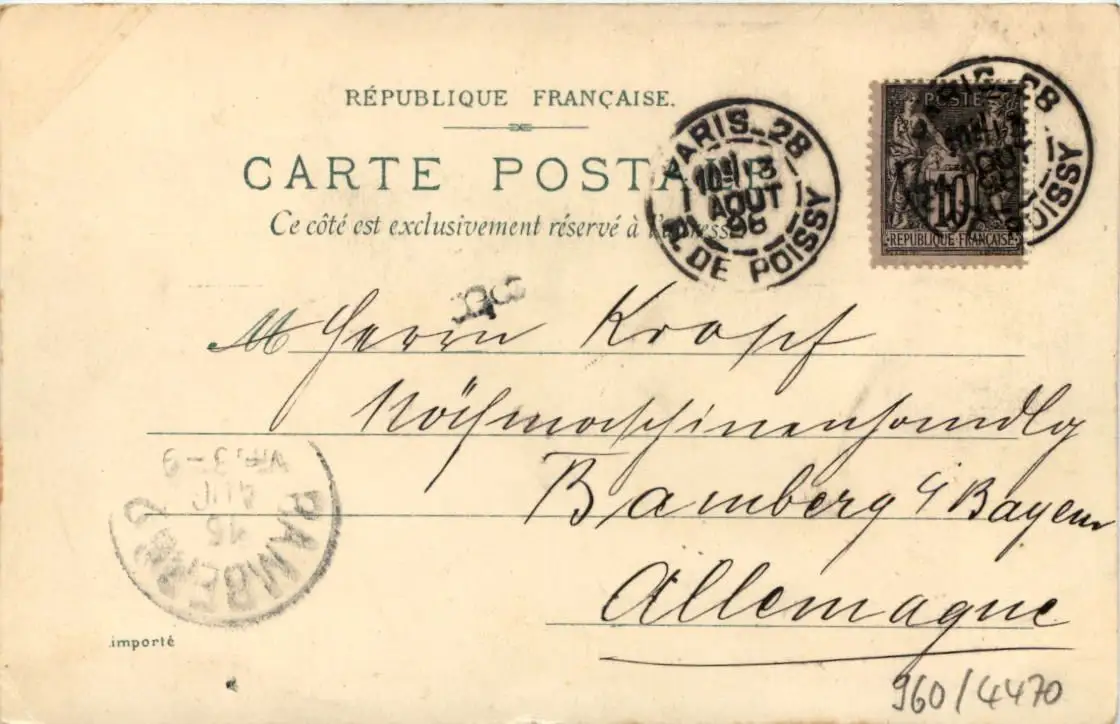 RÉPUBLIQUE FRANÇAISE.
CARTE POSTALE
Ce côté est exclusivement réservé à l'adresse
PARIS_28
13
AOUT
R. DE POISSY
PARIS_28
R. DE POISSY
POSTE
10
RÉPUBLIQUE FRANÇAISE
M Herrn Kropf
Nähmaschinenhandlg
Bamberg Bayern
Allemagne
BAMBERG
15
AUG
importé
960/4470